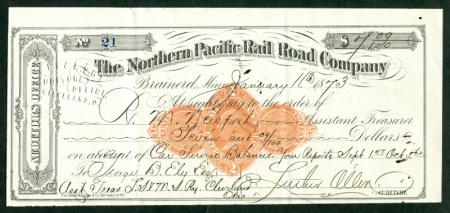 No 21 $ 7 09/100
The Northern Pacific Rail Road Company
Brainerd, Minn January 11th 1873
At sight pay to the order of
R. M. Newport Assistant Treasurer
Seven and 09/100 Dollars
on account of Car Service Balances. Your Reports Sept 1st Oct.
To George B. Ely Esq
Asst Treas L.S. & M.S. Ry. Cleveland
AUDITOR.
AUDITOR'S OFFICE